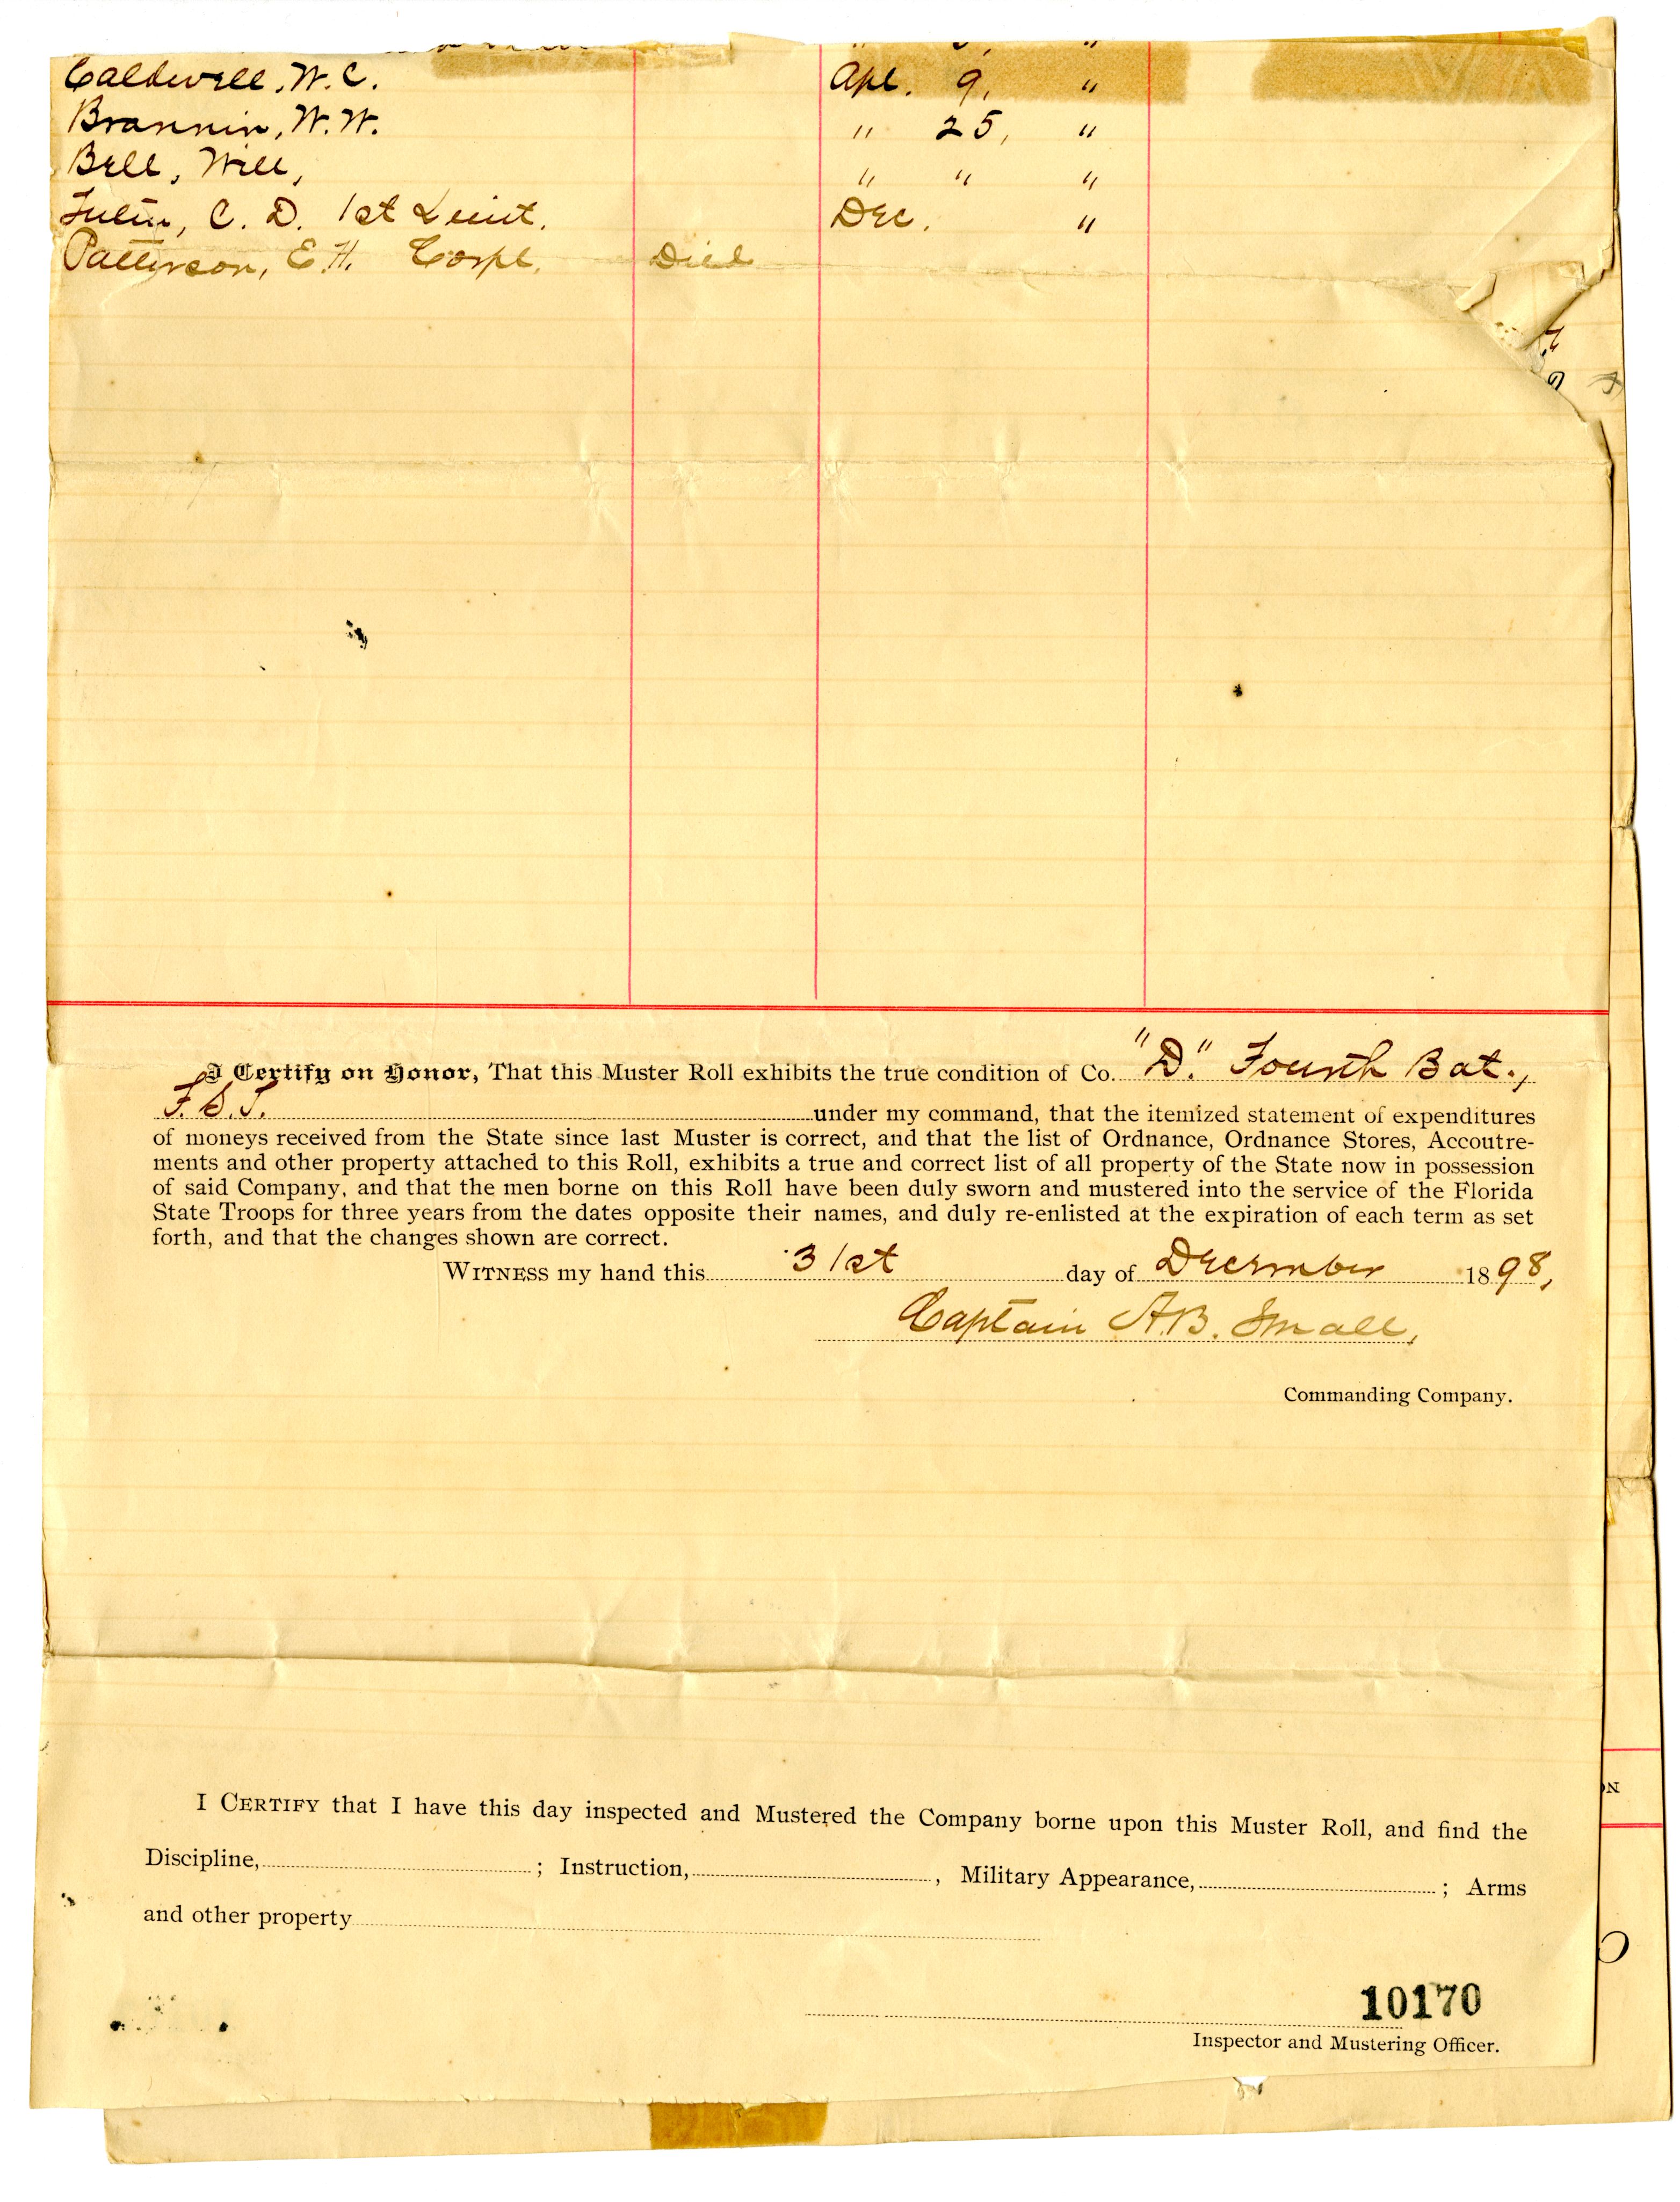 Caldwell, W. C. Apl. 9, "
Brannin, W. W. " 25, "
Bell, Will, " " "
C. D. 1st Lieut. Dec. "
Patterson, E. H. Corpl. Died
I Certify on Honor, That this Muster Roll exhibits the true condition of Co. "D." Fourth Bat.,
F. S. T. under my command, that the itemized statement of expenditures
of moneys received from the State since last Muster is correct, and that the list of Ordnance, Ordnance Stores, Accoutre-
ments and other property attached to this Roll, exhibits a true and correct list of all property of the State now in possession
of said Company, and that the men borne on this Roll have been duly sworn and mustered into the service of the Florida
State Troops for three years from the dates opposite their names, and duly re-enlisted at the expiration of each term as set
forth, and that the changes shown are correct.
WITNESS my hand this 31st day of December 1898,
Captain A. B. Small,
Commanding Company.
I CERTIFY that I have this day inspected and Mustered the Company borne upon this Muster Roll, and find the
Discipline, ; Instruction, , Military Appearance, ; Arms
and other property
10170
Inspector and Mustering Officer.